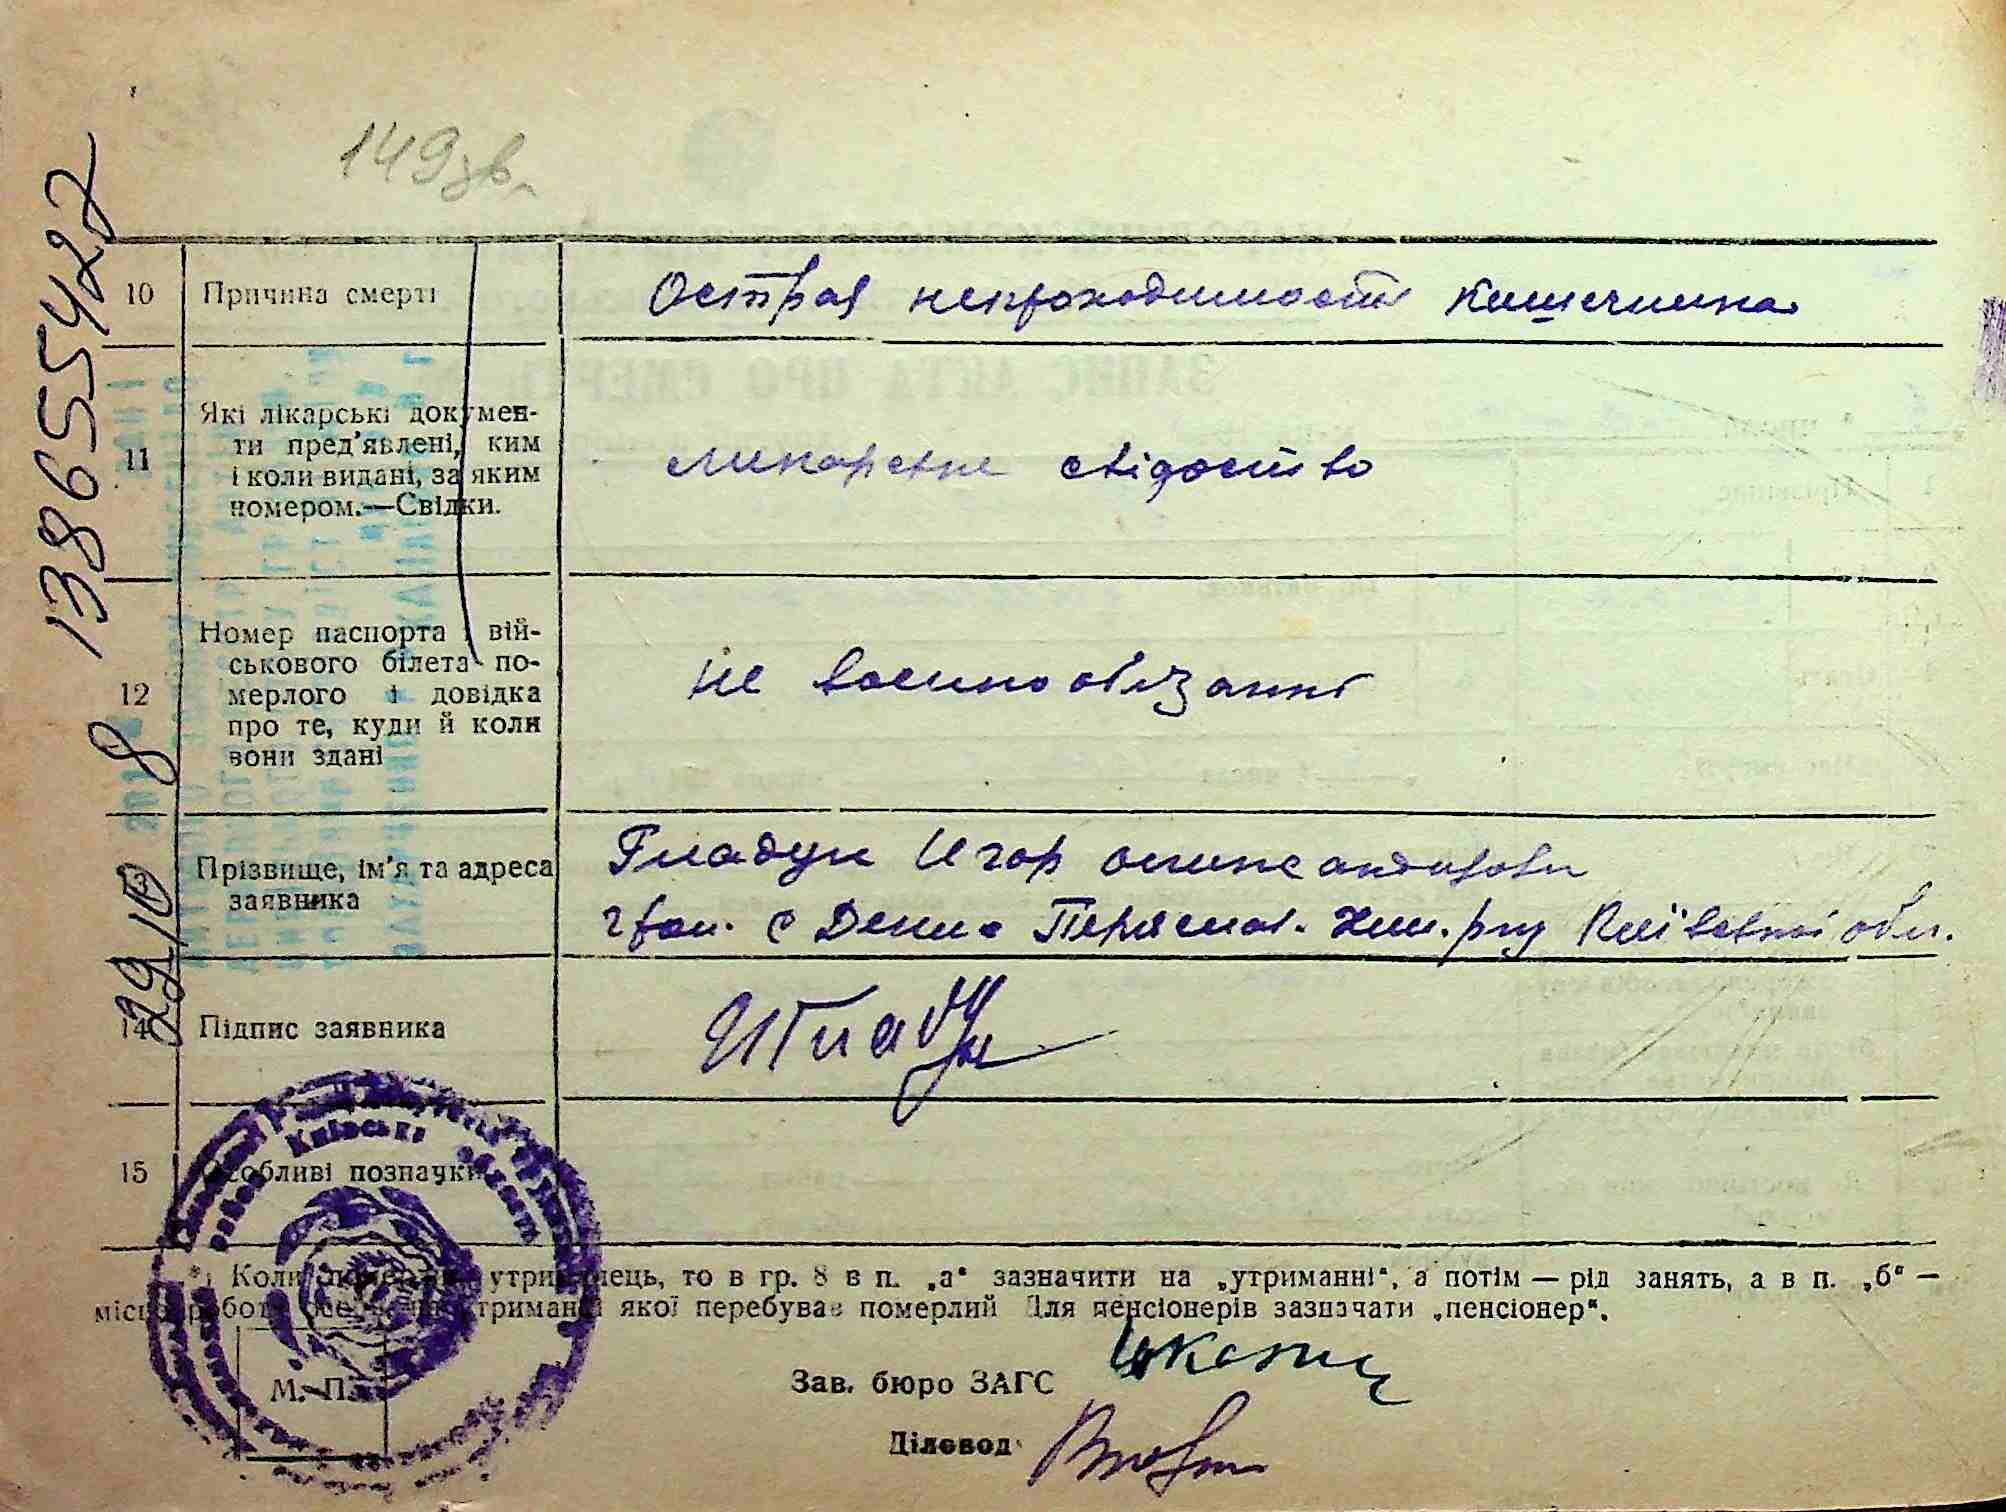 149зв.
13865554227
29 10 8
10 Причина смерті Острая непроходимость кишечника
11 Які лікарські докумен-
ти пред'явлені, ким
і коли видані, за яким
номером.—Свідки.
ликарське свідоство
12 Номер паспорта і вій-
ськового білета по-
мерлого і довідка
про те, куди й коли
вони здані
не военнообязанні
Прізвище, ім'я та адреса
заявника
Гладун Игор
с Дениси Київської обл.
14 Підпис заявника
ИГладун
15 Особливі познаукі
Київська
*) Коли утриманець, то в гр. 8 в п. „а" зазначити на „утриманні", а потім — рід занять, а в п. „б" —
якої перебував померлий Для пенсіонерів зазначати „пенсіонер".
М. П.
Зав. бюро ЗАГС
Діловод